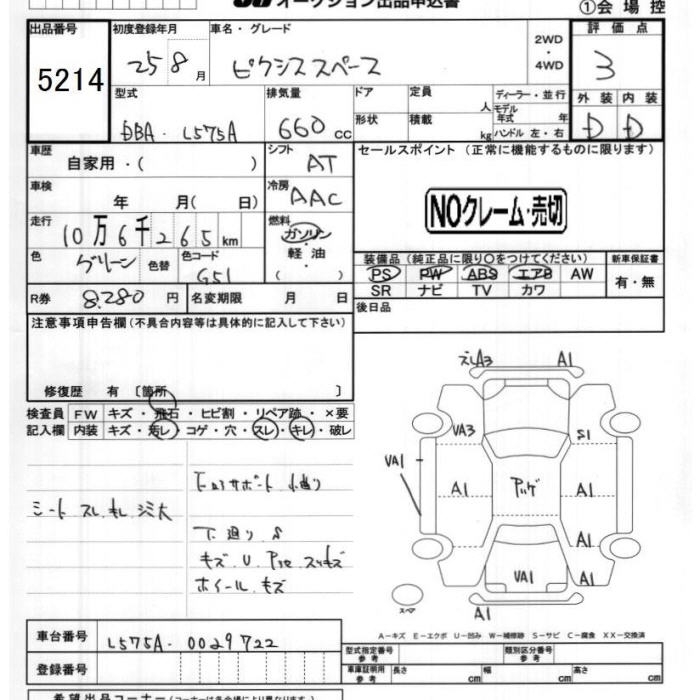 オークション出品申込書
①会場控
出品番号
5214
初度登録年月
25 8月
車名・グレード
ピクシススペース
2WD
・
4WD
評価点
3
型式
DBA・L575A
排気量
660cc
ドア
形状
定員
人
積載
kg
ディーラー・並行
モデル年式
年
ハンドル 左・右
外装 内装
D D
車歴
自家用・( )
シフト
AT
セールスポイント (正常に機能するものに限ります)
車検
年 月( 日)
冷房
AAC
NOクレーム・売切
走行
10万6千265km
燃料
ガソリン
・
軽油
( )
色
グリーン
色替
色コード
G51
装備品(純正品に限り○をつけてください)
PS PW ABS エアB AW
SR ナビ TV カワ
新車保証書
有・無
R券
8,280円
名変期限
月 日
後日品
注意事項申告欄(不具合内容等は具体的に記入して下さい)
修復歴 有〔箇所 〕
検査員
記入欄
FW キズ・飛石・ヒビ割・リペア跡・×要
内装 キズ・汚レ・コゲ・穴・スレ・キレ・破レ
シート スレ キレ シミ大
下廻り S
ホイール キズ
A3
A1
VA3
S1
VA1
A1
A1
A1
VA1
A1
A1
スペア
A－キズ E－エクボ U－凹み W－補修跡 S－サビ C－腐食 XX－交換済
車台番号
L575A-0029722
登録番号
型式指定番号
参考
類別区分番号
参考
車庫証明用
参考
長さ
cm
幅
cm
高さ
cm
希望出品コーナー